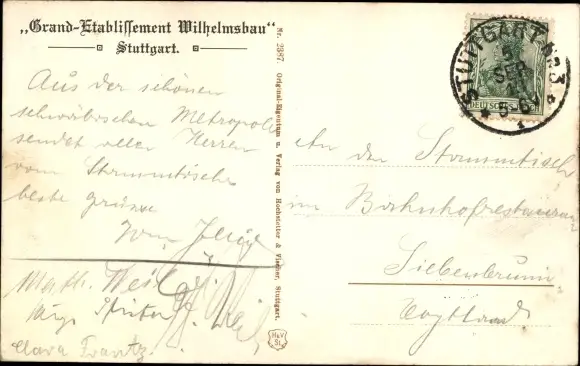 „Grand-Etablissement Wilhelmsbau“
Stuttgart.
Aus der schönen
schwäbischen Metropole
sendet allen Herren
vom Stammtische
beste Grüsse
Nr. 2387. Original-Eigentum u. Verlag von Hochstetter & Vischer, Stuttgart.
H&V
St.
STUTTGART No 3
SEP
5-6
DEUTSCHES
An den Stammtisch
im Bahnhofrestaurant
Siebenbrunn
Vogtland
Math. Weil
Clara Frantz.